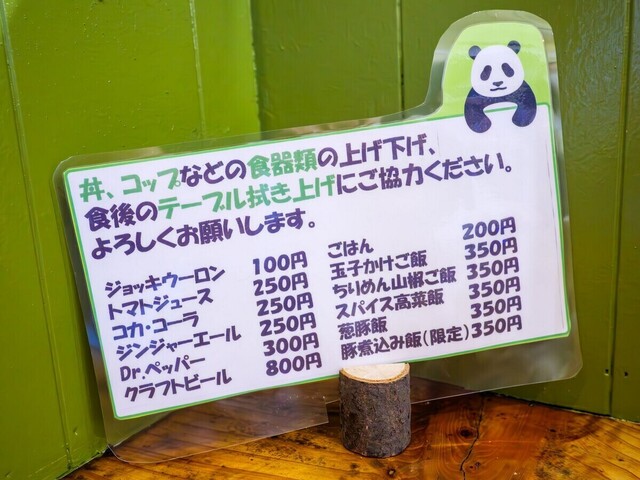 丼、コップなどの食器類の上げ下げ、
食後のテーブル拭き上げにご協力ください。
よろしくお願いします。
ジョッキウーロン 100円
トマトジュース 250円
コカ・コーラ 250円
ジンジャーエール 250円
Dr.ペッパー 300円
クラフトビール 800円
ごはん 200円
玉子かけご飯 350円
ちりめん山椒ご飯 350円
スパイス高菜飯 350円
葱豚飯 350円
豚煮込み飯(限定) 350円